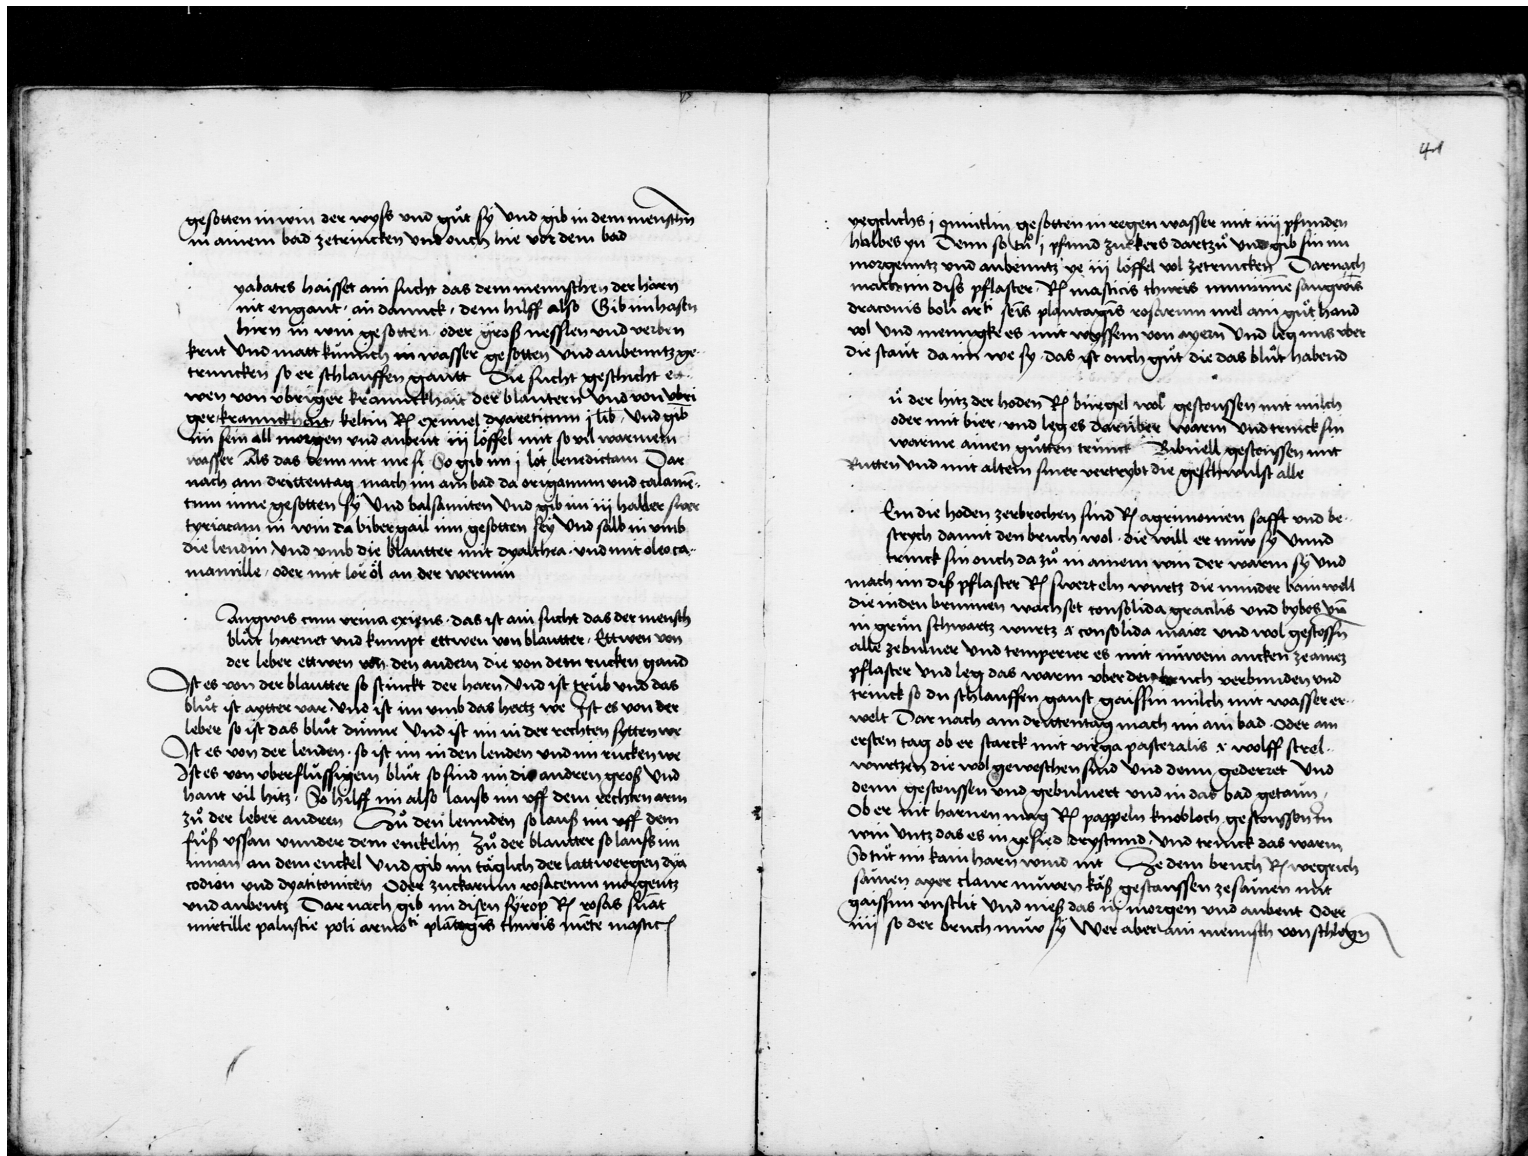 gesotten in win der wyss vnd gůt sy Vnd gib in dem menschen
in ainem bad zetrincken Vnd ouch hie vor dem bad
yabates haisset ain sucht das dem menschen der harn
nit engant, an danck, dem hilff also Gib im hasen
hirn in win gesotten oder groß nesslen vnd verben
krut Vnd matt kümich in wasser gesotten Vnd aubentz ge
truncken so er schlauffen gautt Die sucht geschicht et
wen von vbriger kranckhait der blautern Vnd von vbri
ger kranckhait, keltin R exumel dyureticum j lib, Vnd gib
im sin all morgen vnd aubent iij löffel mit so vil warmem
wasser Als das denn nit me si So gib im j lot benedictam Dar
nach am drittentag mach im ain bad da origanum vnd calamē
tum inne gesotten sy Vnd balsamiten Vnd gib im iij haller swer
tyriacam in win da bibergail inn gesotten sey Vnd salb in vmb
die lendin Vnd vmb die blautter mit dyalthea vnd mit oleo ca
mamille, oder mit lor öl an der wermin
Sangwis cum vrina exiens, das ist ain sucht das der mensch
blůt harnet vnd kumpt ettwen von blautter, Ettwen von
der leber ettwen von den andern die von dem rucken gand
Ist es von der blautter so stinckt der harn Vnd ist trüb vnd das
blůt ist aytter var Vnd ist im vmb das hertz we Ist es von der
leber so ist das blůt dünne Vnd ist im in der rechten sytten we
Ist es von der lenden, so ist im in den lenden vnd im rucken we
Ist es von vberflüssigem blůt so sind im die andren groß Vnd
hant vil hitz, So hilff im also lauß im vff dem rechten arm
zů der leber andren Zů den lennden so lauß im vff dem
fůß vssan vnnder dem enckelin Zů der blautter so lauß im
innan an dem enckel Vnd gib im täglich der lattwergen dya
codion vnd dyatitonicen Oder zuckarum rosacenn morgentz
vnd aubentz Dar nach gib im disen syrop R rosas sumat
mirtille palustie poli armoti plantagīs thuris mēte mastic
41
yegclichs j quintlin gesotten in regen wasser mit iiij pfunden
halbes yn Denn so tů j pfund zuckers dartzů Vnd gib sin im
morgenntz vnd aubenntz ye iij löffel vol zetrincken Darnach
mach im diss pflaster, R masticis thuris mumie sangwis
draconis boli arti seis plantagīs rosarum mel ain gůt hand
vol Vnd menngke es mit wyssem von ayern Vnd leg ims vber
die statt da im we sy, das ist ouch gůt die das blůt habend
ů der hitz der hoden R búrgel wol gestoussen mit milch
oder mit bier, vnd leg es darüber warm Vnd trinck sin
warme ainen gůtten trunck Bibnell gestoussen mit
Rutten Vnd mit altem smer vertrybt die geschwulst alle
Em die hoden zerbrochen sind R agrimonien safft vnd be
strych damit den bruch wol, die will er nüw sy Vnnd
trinck sin ouch da zů in ainem win der warm sy Vnd
mach im diß pflaster R swerteln wurtz die minder bainwell
die in den brunnen wachset consolida gracilis vnd bybos vn̄
in grün schwartz wurtz & consolida maior vnd wol gestossn
alle zebulner Vnd temperier es mit nüwem ancken ze ainez
pflaster Vnd leg das warm vber den bruch verbunden vnd
trinck so du schlauffen gaust gaissin milch mit wasser er
welt Dar nach am drittentag mach im ain bad, Oder am
ersten tag ob er starck mit virga pastoralis & wolff strel
wurtzen die wol geweschen sind Vnd denn gederret Vnd
denn gestoussen vnd gebuluert vnd in das bad getain,
Ob er nit harnen mag R pappeln knobloch gestoussen in
win Vntz das es in gesied drystund, Vnd trinck das warm
So tůt im kain harn wind nit Ze dem bruch R wegrich
saumen ayer clar nüwen käß gestaussen zesamen mit
gaissim vnslit Vnd nieß das iij morgen vnd aubent Oder
iiij so der bruch nüw sy Wer aber ain mensch von schlegn